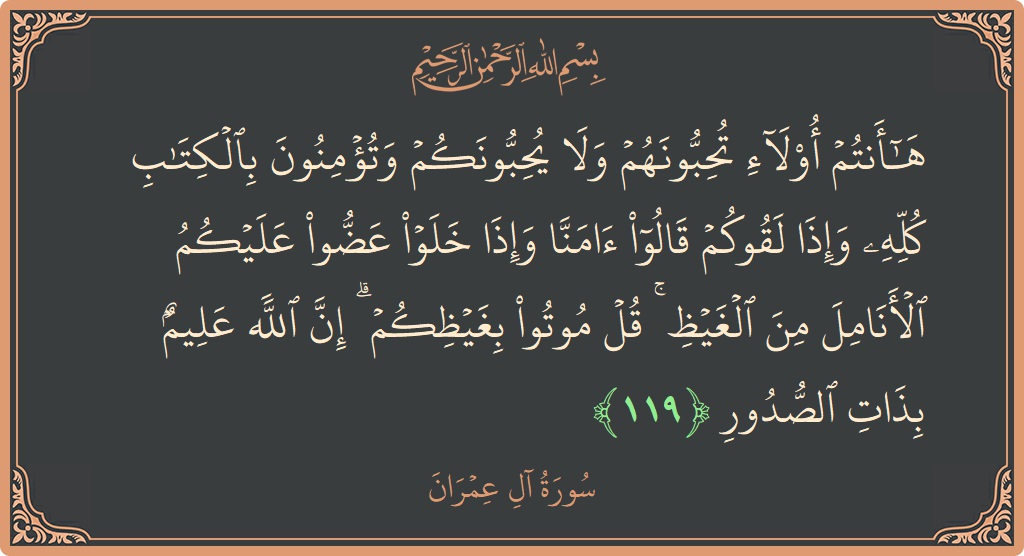 بِسْمِ اللَّهِ الرَّحْمَٰنِ الرَّحِيمِ
هَـٰٓأَنتُمۡ أُوْلَآءِ تُحِبُّونَهُمۡ وَلَا يُحِبُّونَكُمۡ وَتُؤۡمِنُونَ بِٱلۡكِتَـٰبِ
كُلِّهِۦ وَإِذَا لَقُوكُمۡ قَالُوٓاْ ءَامَنَّا وَإِذَا خَلَوۡاْ عَضُّواْ عَلَيۡكُمُ
ٱلۡأَنَامِلَ مِنَ ٱلۡغَيۡظِ ۚ قُلۡ مُوتُواْ بِغَيۡظِكُمۡ ۗ إِنَّ ٱللَّهَ عَلِيمٌۢ
بِذَاتِ ٱلصُّدُورِ ﴿١١٩﴾
سُورَةُ آلِ عِمۡرَانَ